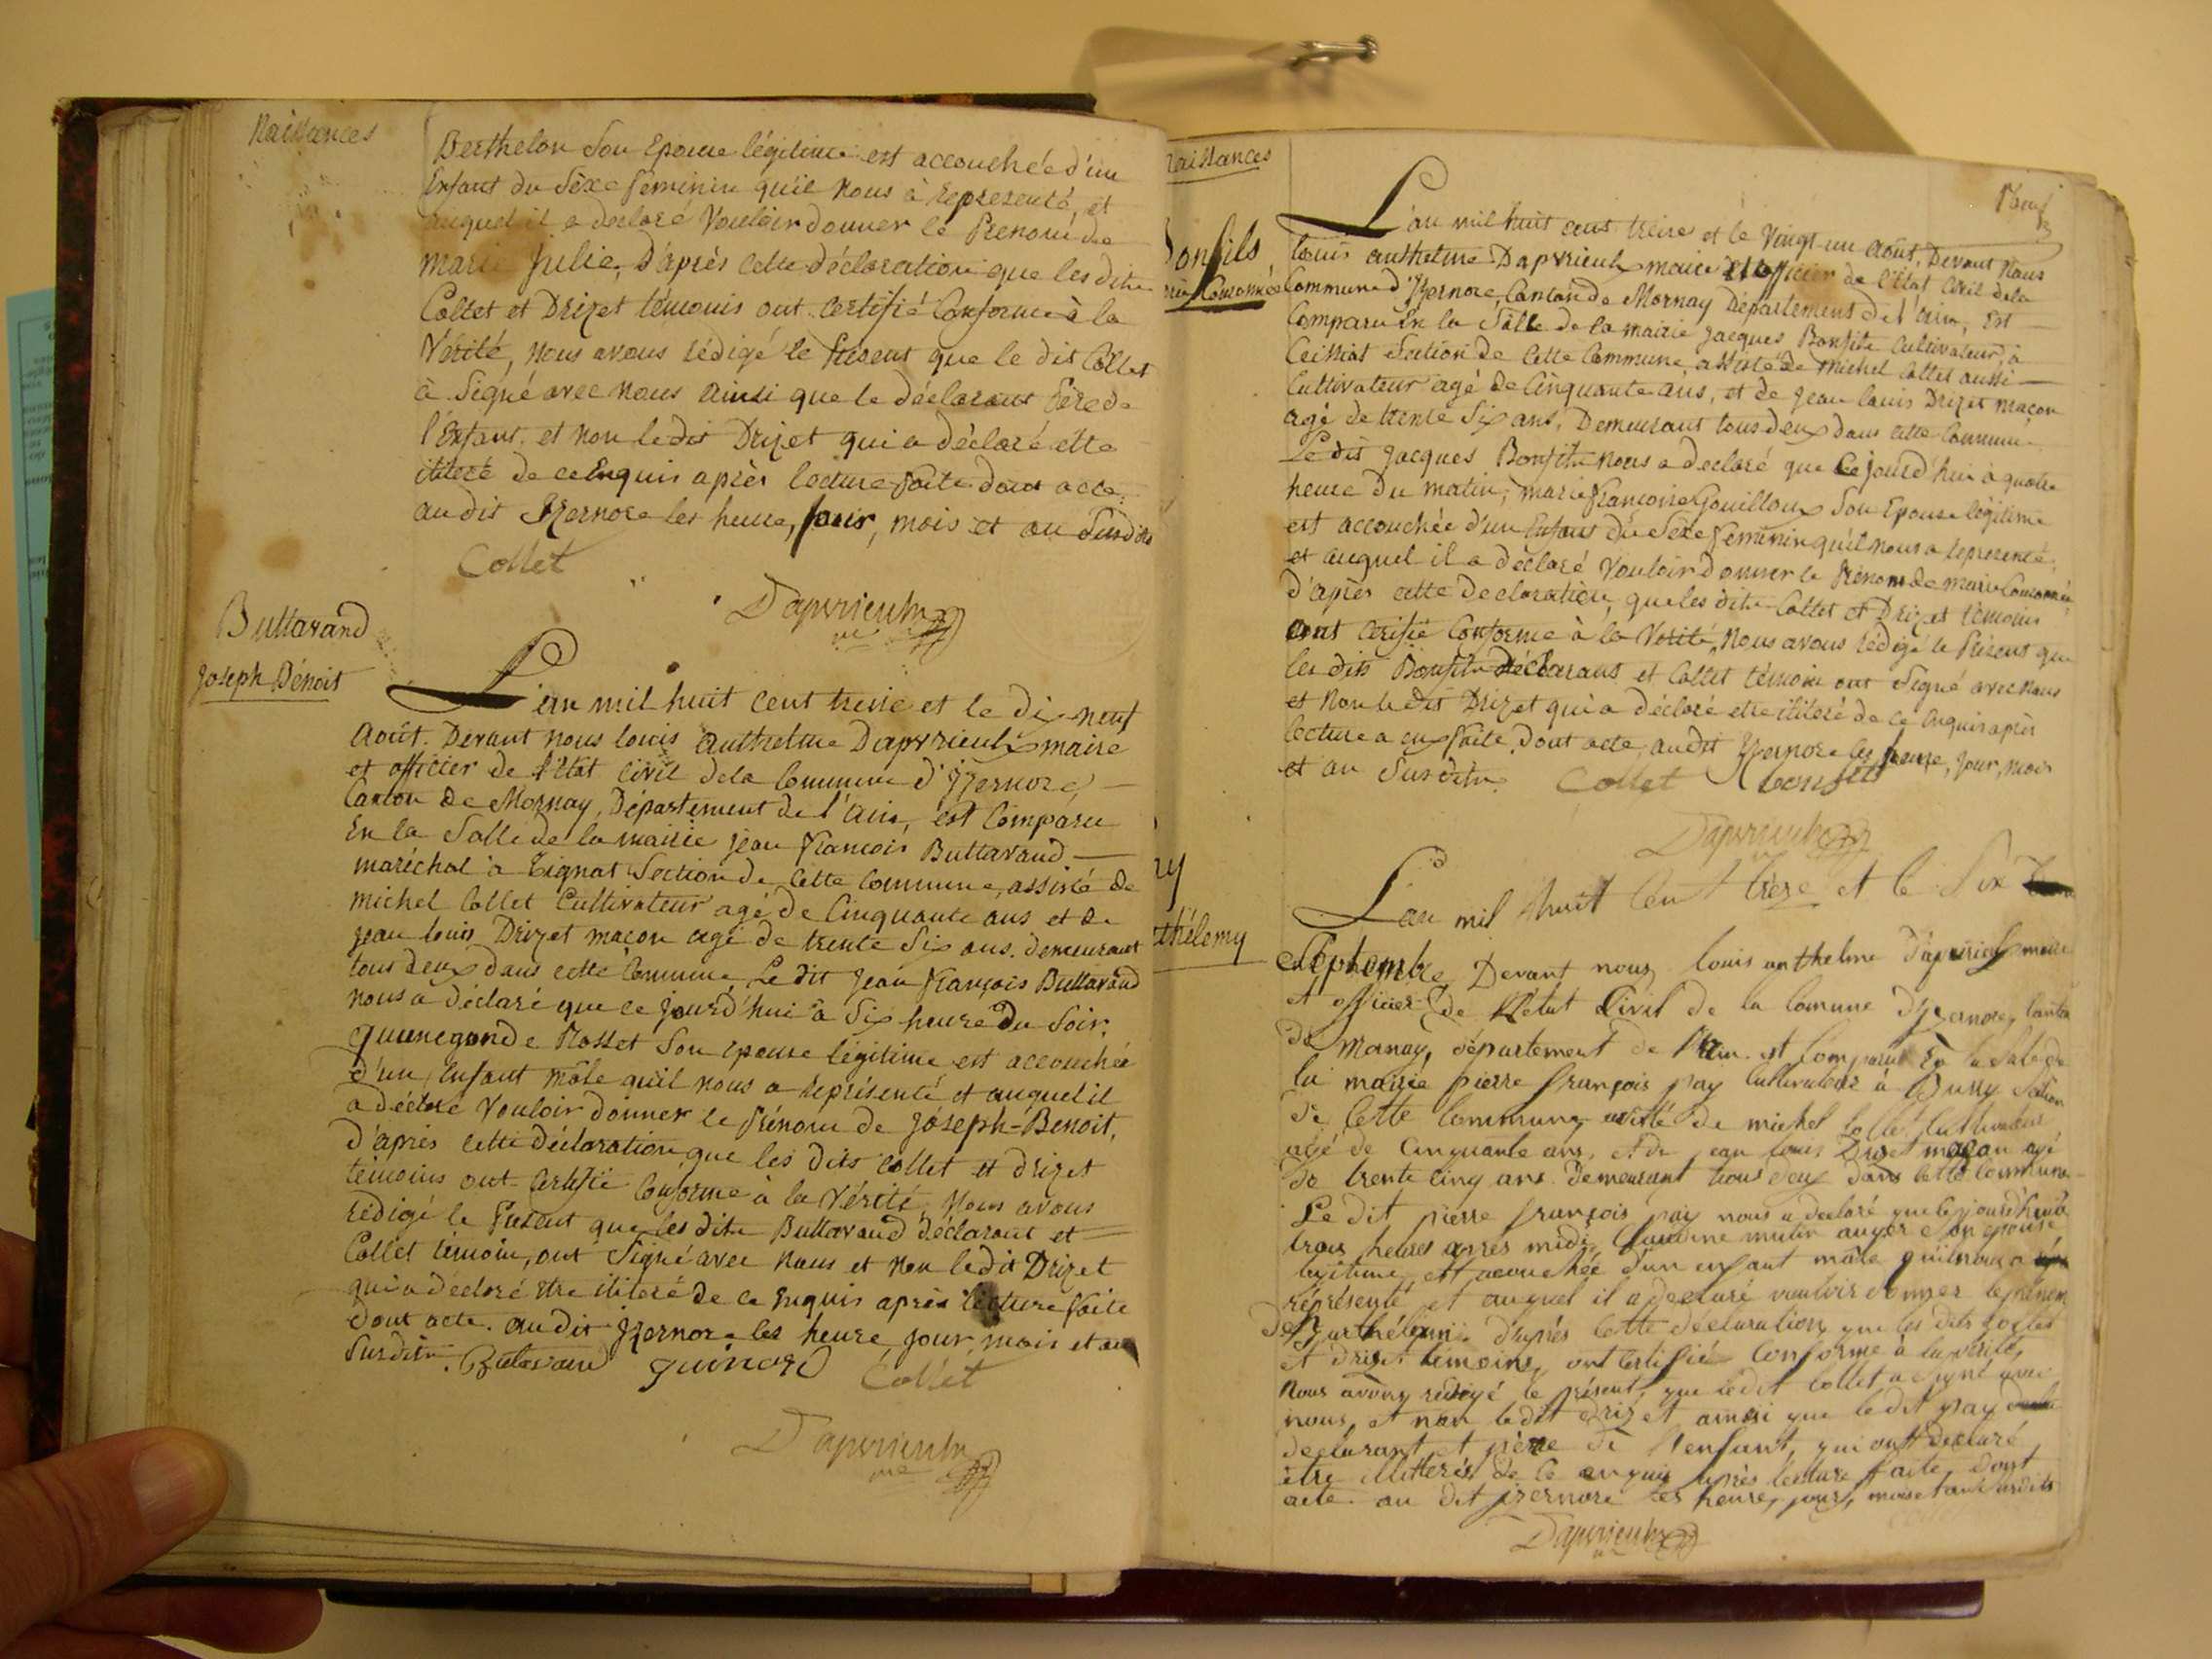 Naissances
Berthelon Son Epouse légitime est accouchée d'un
Enfant du Séxe féminin qu'il nous à représenté, et
auquel il a déclaré Vouloir donner le Prénom de
Marie Julie, D'après cette déclaration que les dits
Collet et Drizet témoins ont certifié Conforme à la
Vérité, nous avons rédigé le Présent que le dit Collet
à Signé avec nous ainsi que le déclarant Père de
l'Enfant. et non le dit Drizet qui a déclaré être
iliteré de ce Enquis après lecture faite dont acte.
au dit Izernore les heure, jour, mois et an Susdits
Collet
Dapvrieulx
Buttavand
Joseph Bénoit
L'an mil huit cent treize et le dix neuf
Août. Devant nous louis Authelme Dapvrieulx maire
et officier de l'état civil de la Commune d'Izernore
Canton de Mornay, Département de l'Ain, est Comparu
En la Salle de la mairie Jean François Buttavand
maréchal à Tignat Section de Cette Commune, assisté de
Michel Collet Cultivateur agé de Cinquante ans et de
Jean louis Drizet maçon agé de trente Six ans. demeurant
tous deux dans cette Commune, Le dit Jean François Buttavand
nous a déclaré que ce jourd'hui à Six heure du Soir,
Qunegonde Rosset Son epouse légitime est accouchée
d'un Enfant mâle qu'il nous a représenté et auquel il
a déclaré Vouloir donner le Prénom de Joseph-Benoit,
d'après cette déclaration que les dits Collet et Drizet
témoins ont certifié Conforme à la Vérité, Nous avons
rédigé le Présent que les dits Buttavand déclarant et
Collet témoin, ont Signé avec nous et non le dit Drizet
qui a déclaré être iliteré de ce Enquis après lecture faite
dont acte. au dit Izernore les heure, jour, mois et an
Susdits. Collet
Dapvrieulx
me
Naissances
Bonfils
L'an mil huit cent treize et le Vingt un Août, Devant Nous
louis authelme Dapvrieulx maire et officier de l'état Civil de la
Commune d'Izernore, Canton de Mornay Département de l'ain, Est
Comparu En la Salle de la mairie Jacques Bonfils Cultivateur, à
Ceissiat Section de Cette Commune, assisté de Michel Collet aussi
Cultivateur agé de Cinquante ans, et de Jean louis Drizet maçon
agé de trente Six ans, Demeurant tous deux dans cette Commune
Le dit Jacques Bonfils nous a declaré que ce jourd'hui à quatre
heure du matin, marie françoise Gouilloux Son Epouse légitime
est accouchée d'un Enfant du Sexe féminin qu'il nous a représenté
et auquel il a déclaré Vouloir donner le Prénom de marie
d'après cette Declaration, que les dits Collet et Drizet témoins
ont certifié Conforme à la Vérité, Nous avons rédigé le Présent que
les dits Bonfils déclarant et Collet témoin ont Signé avec nous
et non le dit Drizet qui a déclaré etre iliteré de ce Enquis après
lecture a eux faite, dont acte, au dit Izernore les heure, jour, mois
et an Susdits. Collet bonfils
Dapvrieulx
thélemy
L'an mil huit Cent trèze et le Six
Septembre Devant nous louis anthelme Dapvrieulx maire
et officier de l'état Civil de la Comune d'izernore, Canton
de Mornay, département de l'Ain. est Comparu En la Sale de
la mairie pierre françois pay Cultivateur à Bussy Section
de Cette Commune assisté de michel Collet Cultivateur
agé de Cinquante ans, et de jean louis Drizet maçon agé
de trente cinq ans. Demeurant tous deux dans cette Commune
Le dit pierre françois pay nous a declaré que ce jourd'hui à
trois heures après midi, Claudine Son epouse
legitime, est acouchée d'un enfant mâle qu'il nous a
représenté et auquel il a declaré vouloir donner le prénom
de Barthélemi. D'après Cette déclaration que les dits Collet
et drizet témoins, ont certifié Conforme à la vérité,
Nous avons rédigé le présent, que le dit Collet a Signé avec
nous, et non le dit drizet ainsi que le dit pay
declarant et père de l'enfant, qui ont declaré
être illitterés de ce enquis après lecture faite, dont
acte. au dit izernore les heure, jour, mois et an Susdits
Dapvrieulx